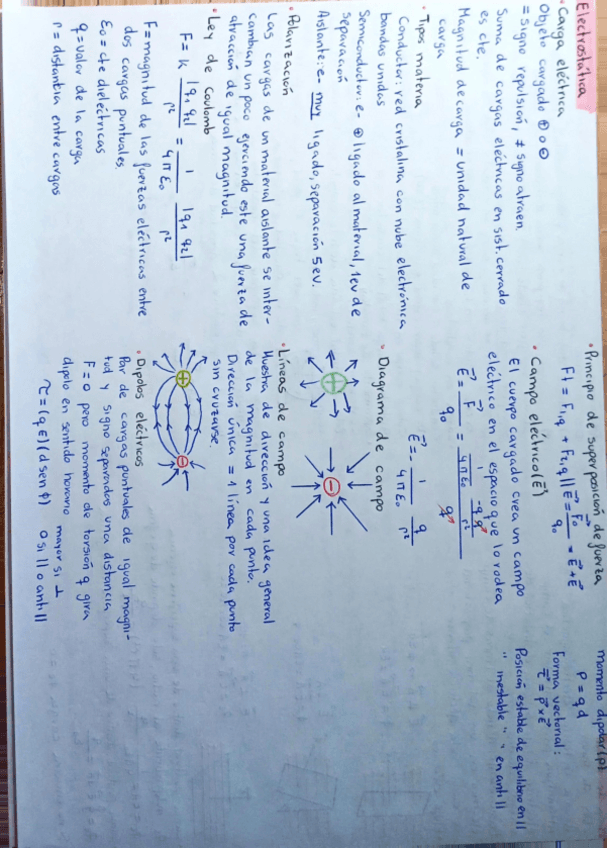 Electrostática
· Carga eléctrica
Objeto cargado ⊕ o ⊖
= signo repulsión, ≠ signo atraen
Suma de cargas eléctricas en sist. cerrado
es cte.
Magnitud de carga = unidad natural de
carga
· Tipos materia
Conductor: red cristalina con nube electrónica
bandas unidas
Semiconductor: e- ⊕ ligado al material, 1ev de
separación
Aislante: e- muy ligado, separación 5ev.
· Polarización
Las cargas de un material aislante se inter-
cambian un poco ejerciendo este una fuerza de
atracción de igual magnitud.
· Ley de Coulomb
F = k |q1 q2| / r² = 1 / 4πε0 |q1 q2| / r²
F = magnitud de las fuerzas eléctricas entre
dos cargas puntuales
ε0 = cte dieléctricas
q = valor de la carga
r = distancia entre cargas
· Principio de superposición de fuerza
Ft = F1,q + F2,q || E = F0 / q0 = E + E
· Campo eléctrico (E)
El cuerpo cargado crea un campo
eléctrico en el espacio que lo rodea
E = F / q0 = 1 / 4πε0
E = 1 / 4πε0 q / r²
· Diagrama de campo
+ −
· Líneas de campo
Muestra de dirección y una idea general
de la magnitud en cada punto.
Dirección única = 1 línea por cada punto
sin cruzarse
+ −
· Dipolos eléctricos
Par de cargas puntuales de igual magni-
tud y signo separados una distancia
F = 0 pero momento de torsión q gira
dipolo en sentido horario mayor si ⊥
τ = (qE)(d sen ϕ) 0 si || o anti ||
momento dipolar (p)
p = q d
Forma vectorial:
τ = p × E
Posición estable de equilibrio en ||
" inestable " " en anti ||